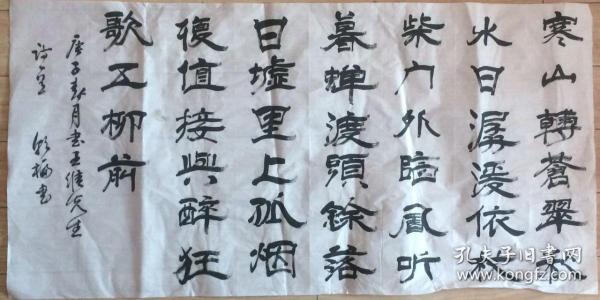 寒山轉蒼翠秋
水日潺湲依杖
柴门外臨風听
暮蝉渡頭餘落
日墟里上孤烟
復值接與醉狂
歌五柳前
庚子春月书王维先生
诗 书
孔夫子旧书网
www.kongfz.com